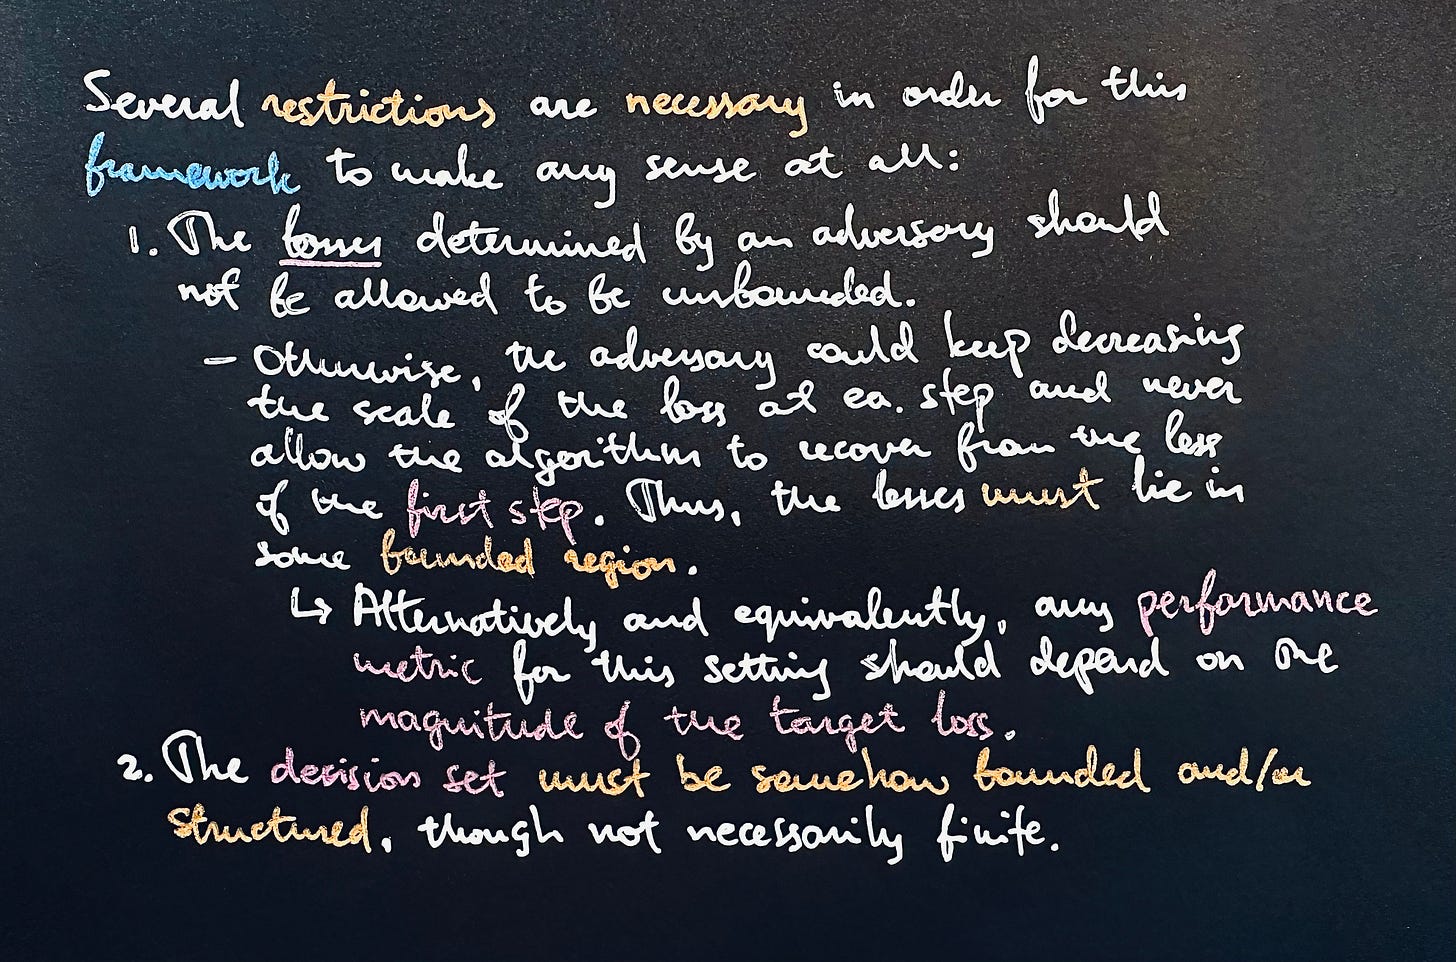 Several restrictions are necessary in order for this
framework to make any sense at all:
1. The losses determined by an adversary should
not be allowed to be unbounded.
- Otherwise, the adversary could keep decreasing
the scale of the loss at ea. step and never
allow the algorithm to recover from the loss
of the first step. Thus, the losses must lie in
some bounded region.
↳ Alternatively and equivalently, any performance
metric for this setting should depend on the
magnitude of the target loss.
2. The decision set must be somehow bounded and/or
structured, though not necessarily finite.